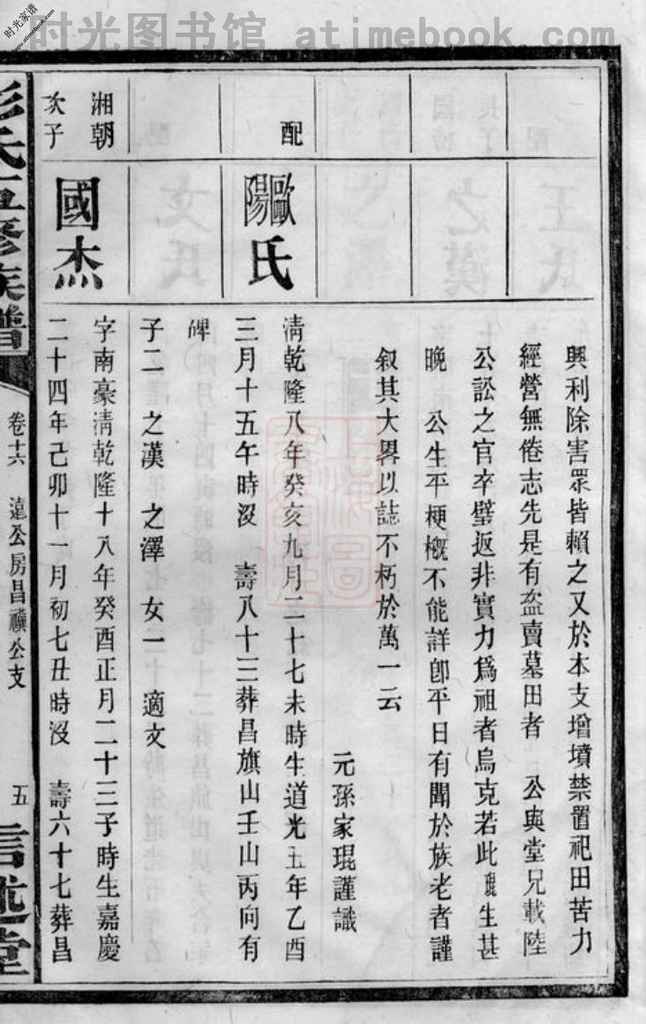 时光图书馆 www.atimebook.com
时光家谱
興利除害眾皆賴之又於本支增墳禁置祀田苦力
經營無倦志先是有盜賣墓田者 公與堂兄載陸
公訟之官卒璧返非實力為祖者烏克若此 生甚
晚 公生平梗概不能詳卽平日有聞於族老者謹
叙其大畧以誌不朽於萬一云
元孫家琨謹識
配
歐陽氏
清乾隆八年癸亥九月二十七未時生道光五年乙酉
三月十五午時沒 壽八十三葬昌旗山壬山丙向有
碑
子二 之漢 之澤 女一 適文
湘朝
次子
國杰
字南豪清乾隆十八年癸酉正月二十三子時生嘉慶
二十四年己卯十一月初七丑時沒 壽六十七葬昌
彭氏五修族譜
卷十六 遠公房昌禩公支
五
信述堂